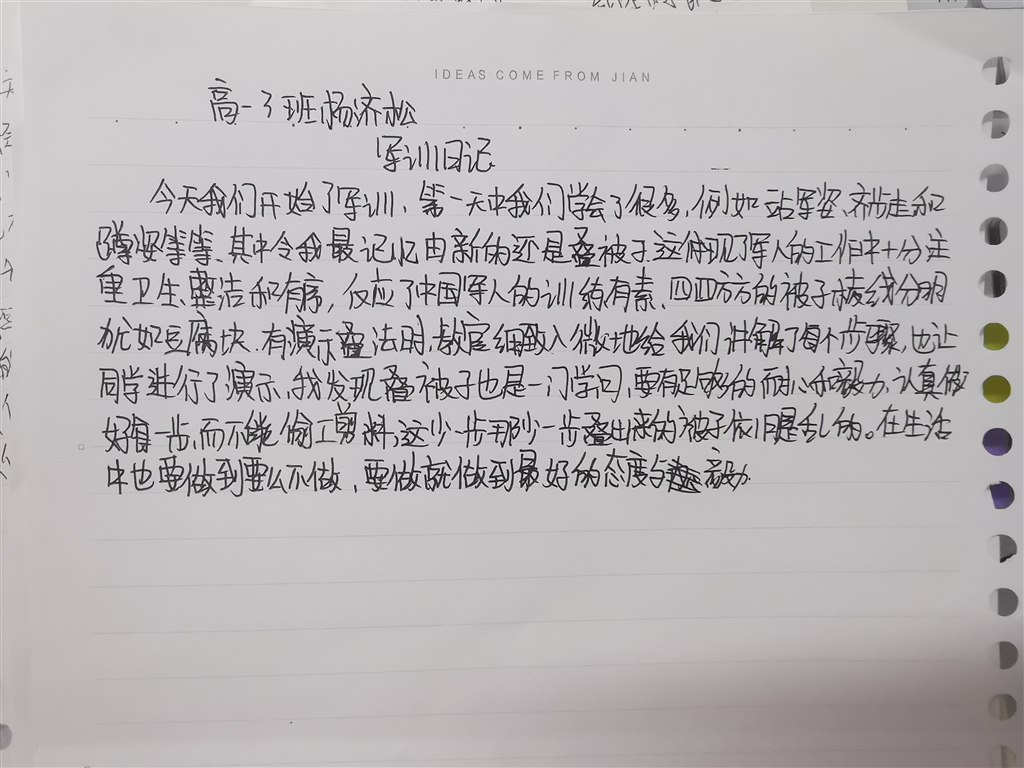 IDEAS COME FROM JIAN
高一3班杨济松
军训日记
今天我们开始了军训、第一天中我们学会了很多,例如站军姿、齐步走和
蹲姿等等、其中令我最记忆由新的还是叠被子、这体现了军人的工作中十分注
重卫生、整洁和有序,仅应了中国军人的训练有素、四四方方的被子棱线分明
犹如豆腐块、有演示叠法时,教官细致入微地给我们讲解了每个步骤,也让
同学进行了演示、我发现叠被子也是一门学问,要有足够的耐心和毅力、认真做
好每一步,而不能偷工剪料、这少一步那少一步叠出来的被子依旧是乱的。在生活
中也要做到要么不做,要做就做到最好的态度与毅力